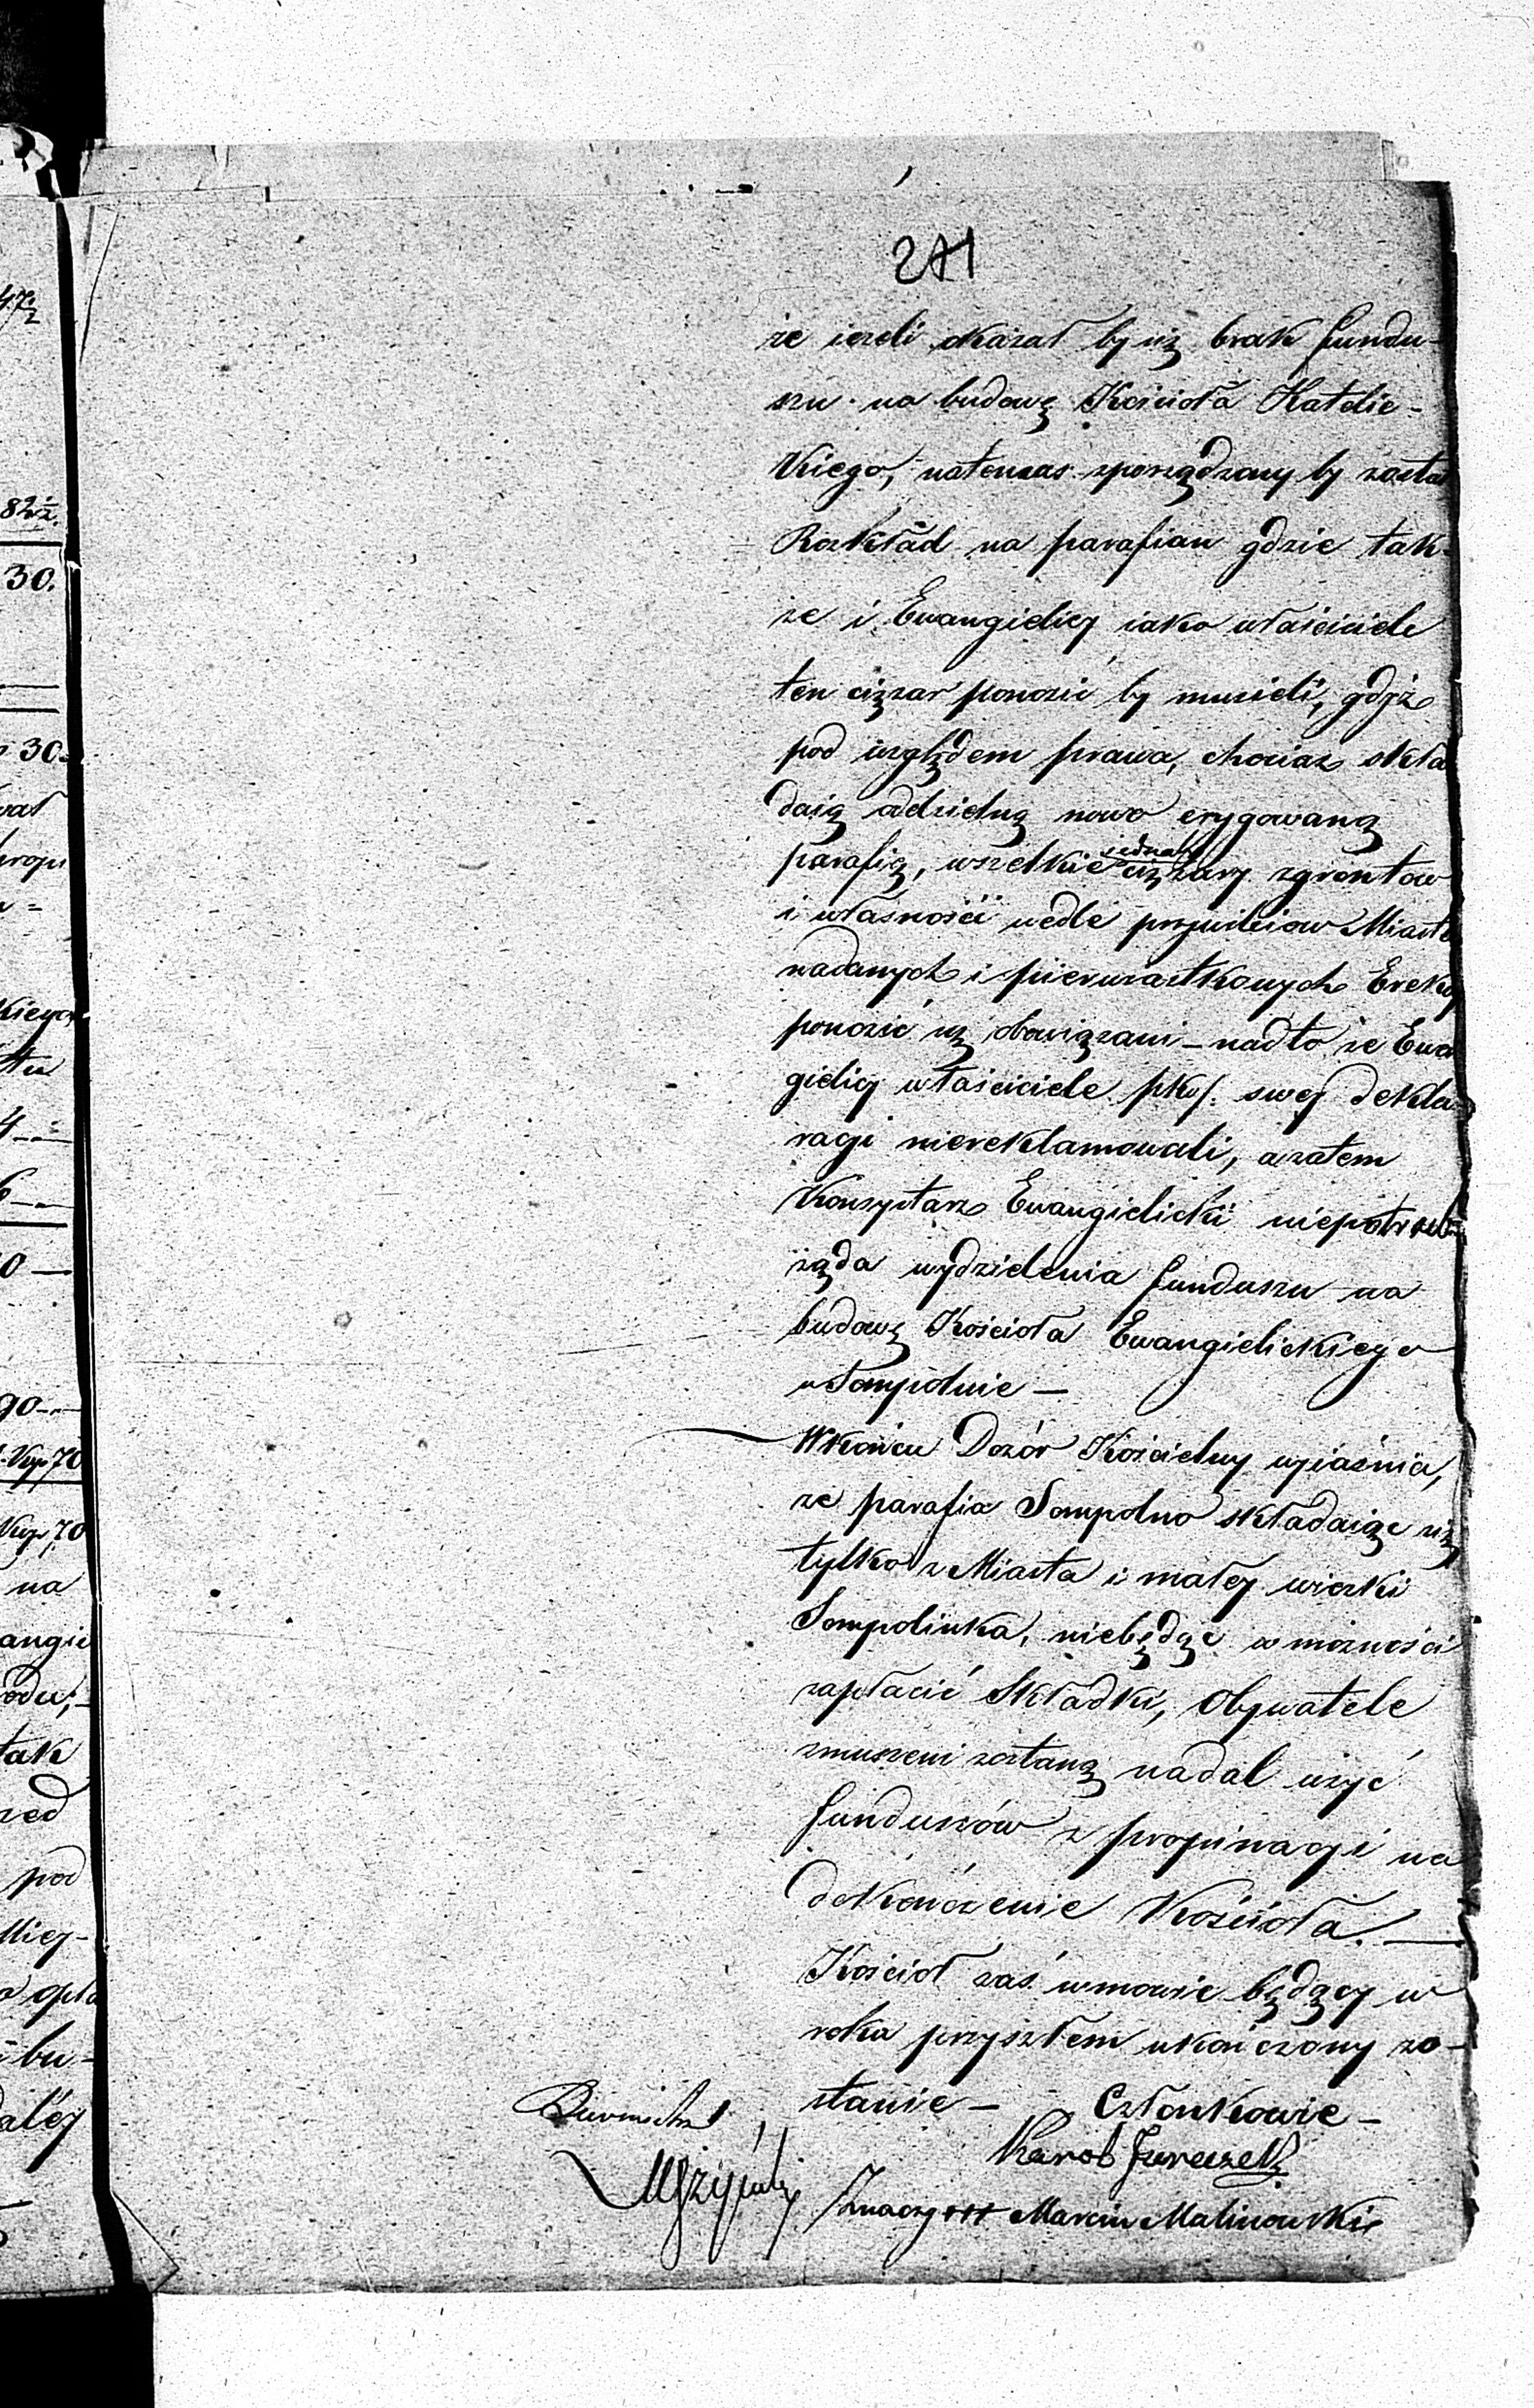 271
że ieżeli okazał by się brak fundu-
szu na budowę Kościoła Katolic-
kiego, natenczas sporządzony by został
Rozkład na parafian gdzie tak-
że i Ewangielicy iako właściciele
ten ciężar ponosić by musieli, gdyż
pod względem prawa, chociaż skła
daią oddzielną nowo erygowaną
parafią, wszelkie jednak ciężary z gruntow
i własności wedle przywileiow Miastu
nadanych i pierwiastkowych Erekcyi
ponosić są obowiązani – nadto że Ewa
gielicy właściciele swej dekla-
racyi niereklamowali, a zatem
Konsystarz Ewangielicki niepotrzebnie
żąda wydzielenia funduszu na
budowę Kościoła Ewangielickiego
w Sompolnie –
W końcu Dozór Kościelny wyiaśnia,
że parafia Sompolno składaiąc się
tylko z Miasta i małey wioski
Sompolinka, niebędąc w możności
zapłacić Składki, Obywatele
zmuszeni zostaną nadal użyć
funduszów z propinacyi na
dokończenie Kościoła. —
Kościoł zaś w mowie będący w
roku przyszłem ukończony zo-
stanie – Członkowie –
Burmistrz
Karol Juraszek
Znaczy +++ Marcin Malinowski
47½
82½.
30.
30
4 —
6 —
0 —
90 —
Kop 70
Kop 70
na
angie
odu; –
tak
zed
pod
Miey-
opła
bu-
daléy